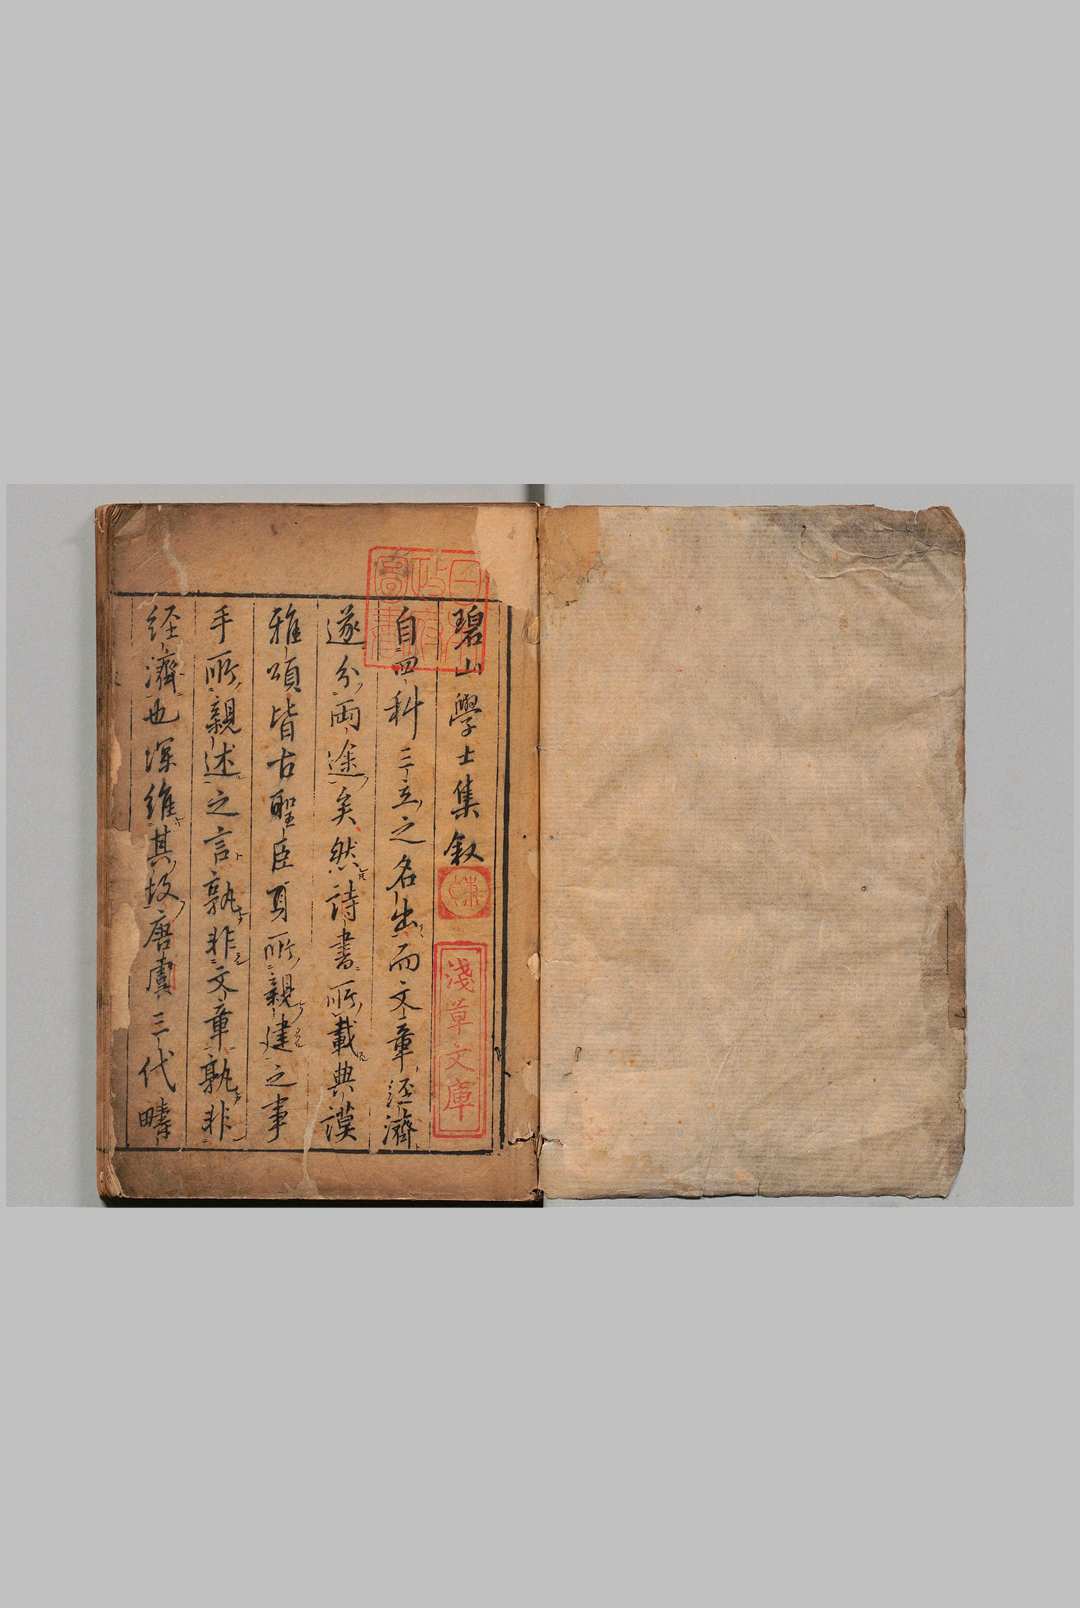 碧山學士集叙
自四科三立之名出而文章經濟
遂分兩途矣然詩書所載典謨
雅頌皆古聖臣肩所親建之事
手所親述之言孰非文章孰非
經濟也深維其故唐虞三代疇
日本政府圖書
淺草文庫